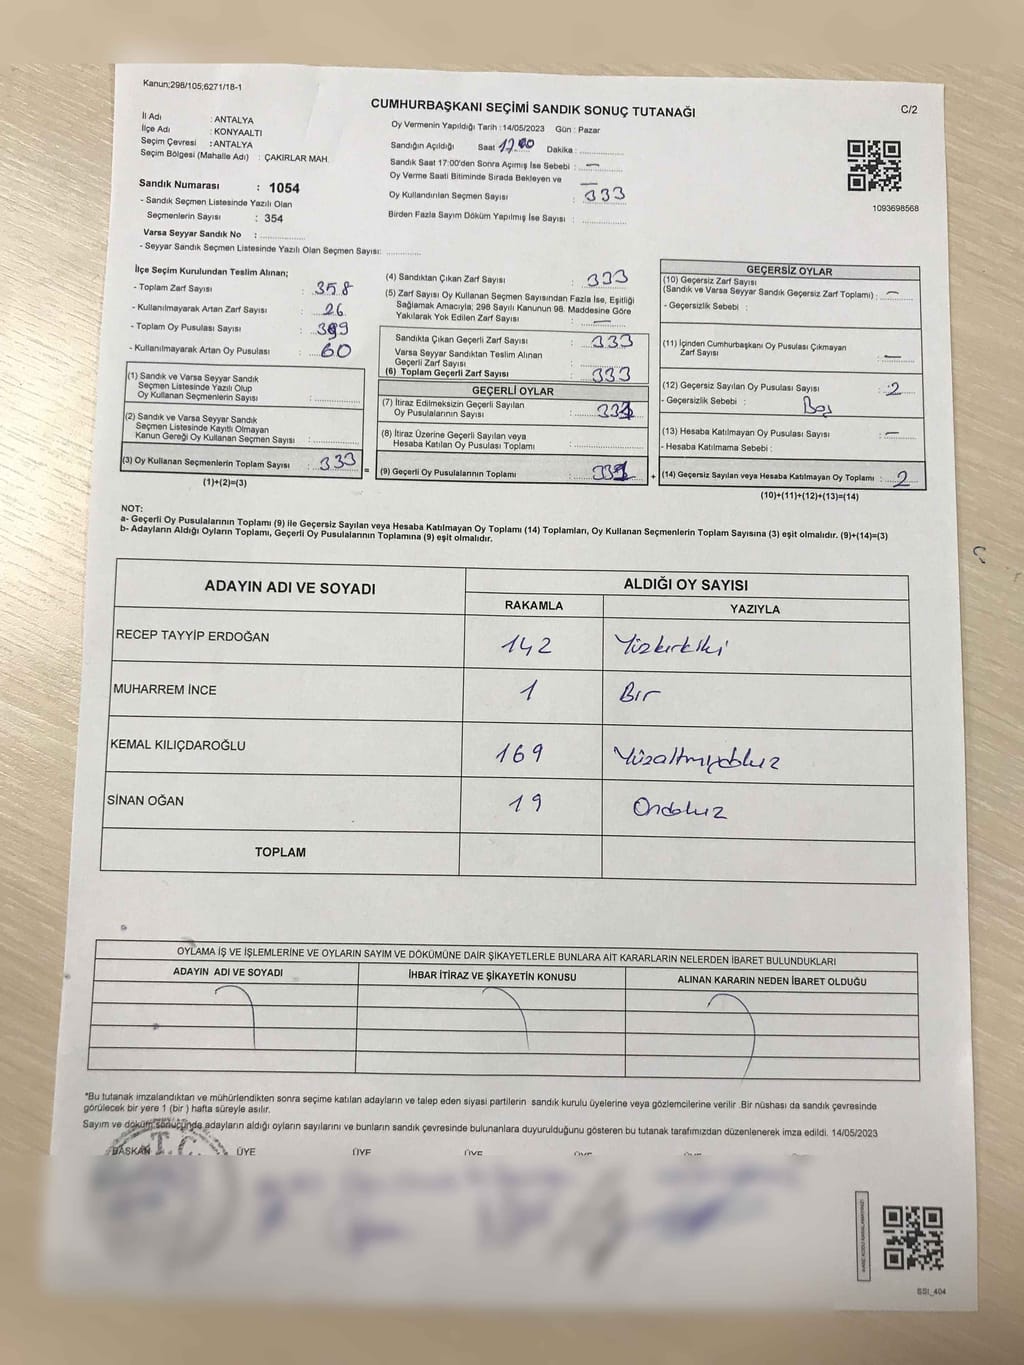 Kanun;298/105;6271/18-1
CUMHURBAŞKANI SEÇİMİ SANDIK SONUÇ TUTANAĞI
C/2
İl Adı : ANTALYA
İlçe Adı : KONYAALTI
Seçim Çevresi : ANTALYA
Seçim Bölgesi (Mahalle Adı) : ÇAKIRLAR MAH.
Sandık Numarası : 1054
- Sandık Seçmen Listesinde Yazılı Olan
Seçmenlerin Sayısı : 354
Varsa Seyyar Sandık No : ..............
- Seyyar Sandık Seçmen Listesinde Yazılı Olan Seçmen Sayısı: ............
Oy Vermenin Yapıldığı Tarih :14/05/2023 Gün : Pazar
Sandığın Açıldığı Saat 17.00 Dakika : ..............
Sandık Saat 17:00'den Sonra Açımış İse Sebebi : —
Oy Verme Saati Bitiminde Sırada Bekleyen ve —
Oy Kullandırılan Seçmen Sayısı : 333
Birden Fazla Sayım Döküm Yapılmış İse Sayısı : ..............
1093698568
İlçe Seçim Kurulundan Teslim Alınan;
- Toplam Zarf Sayısı : 358
- Kullanılmayarak Artan Zarf Sayısı : 26
- Toplam Oy Pusulası Sayısı : 399
- Kullanılmayarak Artan Oy Pusulası : 60
(1) Sandık ve Varsa Seyyar Sandık
Seçmen Listesinde Yazılı Olup
Oy Kullanan Seçmenlerin Sayısı : ..............
(2) Sandık ve Varsa Seyyar Sandık
Seçmen Listesinde Kayıtlı Olmayan
Kanun Gereği Oy Kullanan Seçmen Sayısı : ..............
(3) Oy Kullanan Seçmenlerin Toplam Sayısı : 333
(1)+(2)=(3)
=
(4) Sandıktan Çıkan Zarf Sayısı : 333
(5) Zarf Sayısı Oy Kullanan Seçmen Sayısından Fazla İse, Eşitliği
Sağlamak Amacıyla; 298 Sayılı Kanunun 98. Maddesine Göre
Yakılarak Yok Edilen Zarf Sayısı : —
Sandıkta Çıkan Geçerli Zarf Sayısı : 333
Varsa Seyyar Sandıktan Teslim Alınan
Geçerli Zarf Sayısı : ..............
(6) Toplam Geçerli Zarf Sayısı : 333
GEÇERLİ OYLAR
(7) İtiraz Edilmeksizin Geçerli Sayılan
Oy Pusulalarının Sayısı : 331
(8) İtiraz Üzerine Geçerli Sayılan veya
Hesaba Katılan Oy Pusulası Toplamı : ..............
(9) Geçerli Oy Pusulalarının Toplamı : 331
+
GEÇERSİZ OYLAR
(10) Geçersiz Zarf Sayısı
(Sandık ve Varsa Seyyar Sandık Geçersiz Zarf Toplamı) : —
- Geçersizlik Sebebi :
(11) İçinden Cumhurbaşkanı Oy Pusulası Çıkmayan
Zarf Sayısı : —
(12) Geçersiz Sayılan Oy Pusulası Sayısı : 2
- Geçersizlik Sebebi : Boş
(13) Hesaba Katılmayan Oy Pusulası Sayısı : —
- Hesaba Katılmama Sebebi :
(14) Geçersiz Sayılan veya Hesaba Katılmayan Oy Toplamı : 2
(10)+(11)+(12)+(13)=(14)
NOT:
a- Geçerli Oy Pusulalarının Toplamı (9) ile Geçersiz Sayılan veya Hesaba Katılmayan Oy Toplamı (14) Toplamları, Oy Kullanan Seçmenlerin Toplam Sayısına (3) eşit olmalıdır. (9)+(14)=(3)
b- Adayların Aldığı Oyların Toplamı, Geçerli Oy Pusulalarının Toplamına (9) eşit olmalıdır.
ADAYIN ADI VE SOYADI
ALDIĞI OY SAYISI
RAKAMLA YAZIYLA
RECEP TAYYİP ERDOĞAN 142 Yüzkırkiki
MUHARREM İNCE 1 Bir
KEMAL KILIÇDAROĞLU 169 Yüzaltmışdokuz
SİNAN OĞAN 19 Ondokuz
TOPLAM
OYLAMA İŞ VE İŞLEMLERİNE VE OYLARIN SAYIM VE DÖKÜMÜNE DAİR ŞİKAYETLERLE BUNLARA AİT KARARLARIN NELERDEN İBARET BULUNDUKLARI
ADAYIN ADI VE SOYADI İHBAR İTİRAZ VE ŞİKAYETİN KONUSU ALINAN KARARIN NEDEN İBARET OLDUĞU
*Bu tutanak imzalandıktan ve mühürlendikten sonra seçime katılan adayların ve talep eden siyasi partilerin sandık kurulu üyelerine veya gözlemcilerine verilir .Bir nüshası da sandık çevresinde
görülecek bir yere 1 (bir ) hafta süreyle asılır.
Sayım ve döküm sonucunda adayların aldığı oyların sayılarını ve bunların sandık çevresinde bulunanlara duyurulduğunu gösteren bu tutanak tarafımızdan düzenlenerek imza edildi. 14/05/2023
BAŞKAN ÜYE ÜYE ÜYE ÜYE
T.C.
SSI_404